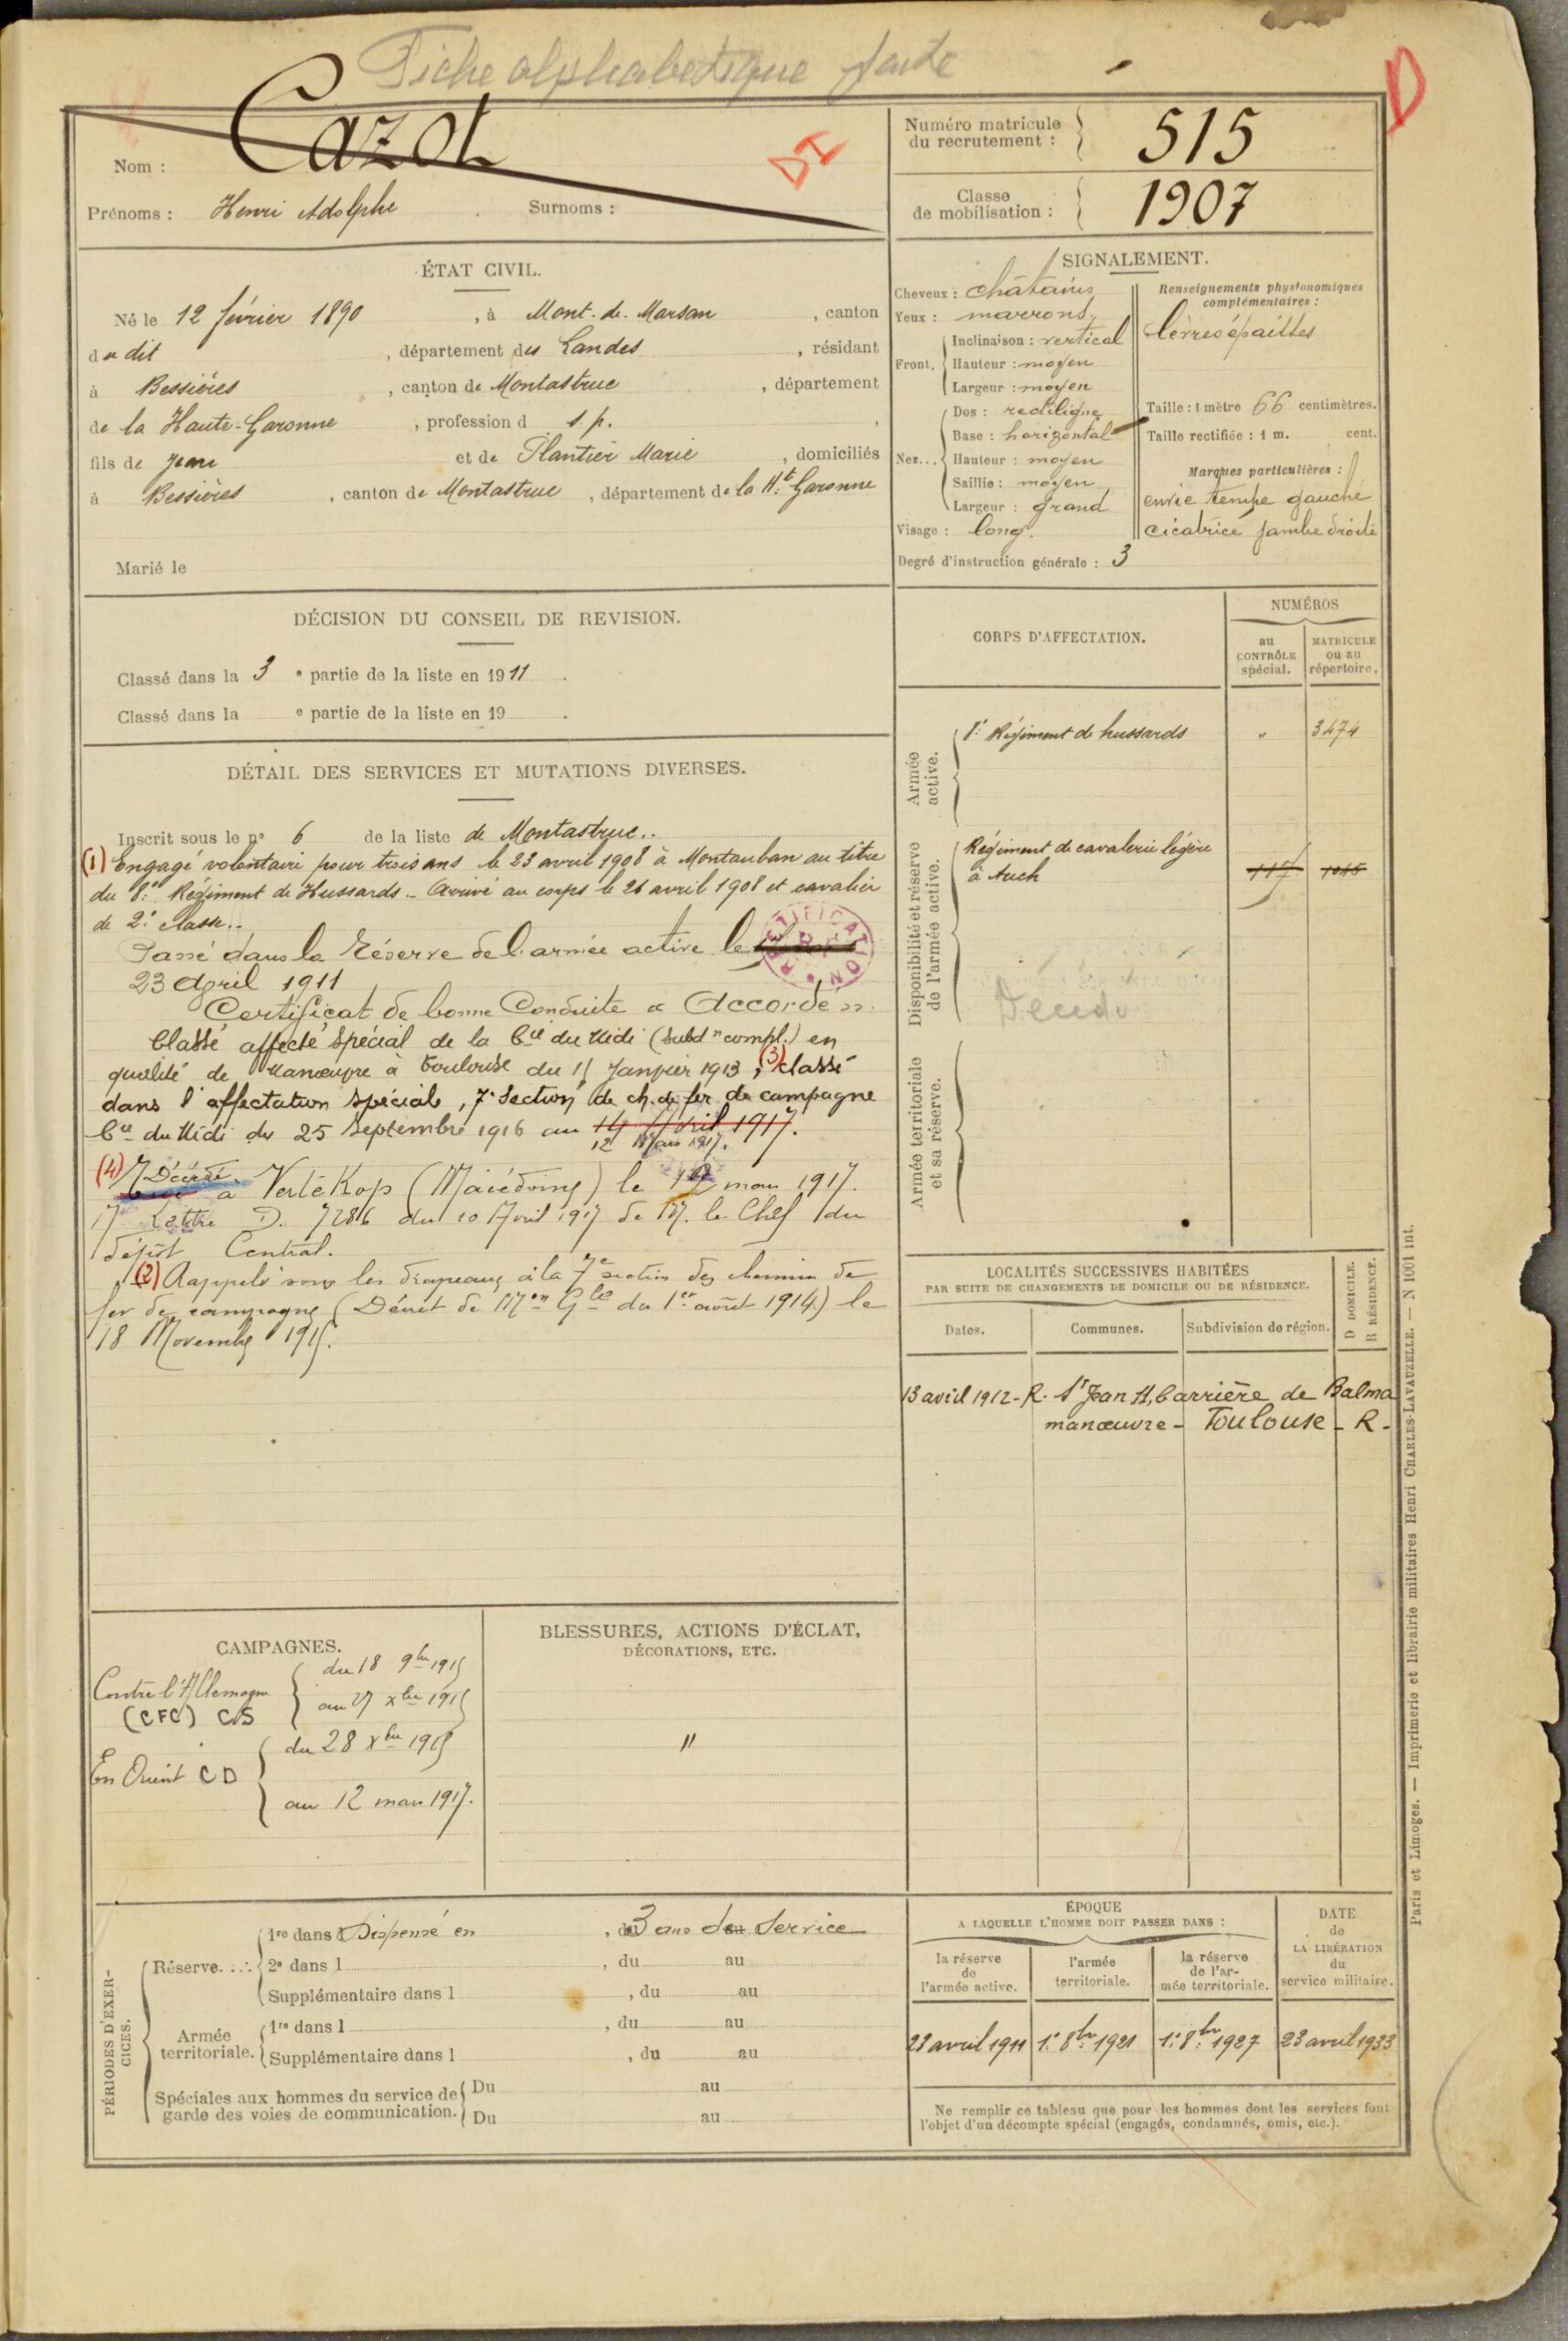 Fiche alphabétique faite
D
Nom : Cazot
DI
Prénoms : Henri Adolphe Surnoms :
Numéro matricule du recrutement : 515
Classe de mobilisation : 1907
ÉTAT CIVIL.
Né le 12 février 1890, à Mont-de-Marsan, canton
du dit, département des Landes, résidant
à Bessières, canton de Montastruc, département
de la Haute-Garonne, profession d s. p.
fils de Jean et de Plantier Marie, domiciliés
à Bessières, canton de Montastruc, département de la Hte Garonne
Marié le
SIGNALEMENT.
Cheveux : châtains
Yeux : marrons
Front. Inclinaison : vertical
Hauteur : moyen
Largeur : moyen
Nez... Dos : rectiligne
Base : horizontal
Hauteur : moyen
Saillie : moyen
Largeur : grand
Visage : long.
Renseignements physionomiques complémentaires :
lèvres épaisses
Taille : 1 mètre 66 centimètres.
Taille rectifiée : 1 m. cent.
Marques particulières :
envie tempe gauche
cicatrice jambe droite
Degré d'instruction générale : 3
DÉCISION DU CONSEIL DE REVISION.
Classé dans la 3 e partie de la liste en 1911.
Classé dans la e partie de la liste en 19 .
DÉTAIL DES SERVICES ET MUTATIONS DIVERSES.
Inscrit sous le n° 6 de la liste de Montastruc..
(1) Engagé volontaire pour trois ans le 23 avril 1908 à Montauban au titre
du 8e Régiment de Hussards.. Arrivé au corps le 26 avril 1908 et cavalier
de 2e classe..
Passé dans la Réserve de l'armée active le
23 Avril 1911
Certificat de bonne Conduite « Accordé ».
Classé affecté spécial de la Cie du Midi (Subdon compl.) en
qualité de Manœuvre à Toulouse du 11 Janvier 1913, (3) classé
dans l'affectation spéciale, 7e Section de ch. de fer de campagne
Cie du Midi du 25 Septembre 1916 au 14 Avril 1917.
12 Mars 1917.
(4) Décédé à Vertékop (Macédoine) le 12 mars 1917.
Lettre D. 7286 du 10 Avril 1917 de M. le Chef du
dépôt Central.
(2) Rappelé sous les drapeaux à la 7e section des chemins de
fer de campagne (Décret de Mon Gle du 1er août 1914) le
18 Novembre 1915.
CORPS D'AFFECTATION.
NUMÉROS
au CONTRÔLE spécial.
MATRICULE ou au répertoire.
Armée active.
8e Régiment de hussards " 3474
Disponibilité et réserve de l'armée active.
Régiment de cavalerie légère
à Auch
Décédé
Armée territoriale et sa réserve.
LOCALITÉS SUCCESSIVES HABITÉES
PAR SUITE DE CHANGEMENTS DE DOMICILE OU DE RÉSIDENCE.
Dates. Communes. Subdivision de région.
D DOMICILE.
R RÉSIDENCE.
13 avril 1912 - R. St Jean 11, Carrière de Balma
manœuvre - Toulouse - R -
CAMPAGNES.
Contre l'Allemagne
(CFC) CS
du 18 9bre 1915
au 27 Xbre 1915
En Orient CD
du 28 Xbre 1915
au 12 mars 1917.
BLESSURES, ACTIONS D'ÉCLAT,
DÉCORATIONS, ETC.
"
PÉRIODES D'EXERCICES.
Réserve...
1re dans Dispensé en, de 3 ans de Service
2e dans l , du au
Supplémentaire dans l , du au
Armée territoriale.
1re dans l , du au
Supplémentaire dans l , du au
Spéciales aux hommes du service de garde des voies de communication.
Du au
Du au
ÉPOQUE
A LAQUELLE L'HOMME DOIT PASSER DANS :
la réserve de l'armée active.
l'armée territoriale.
la réserve de l'armée territoriale.
DATE de LA LIBÉRATION du service militaire.
23 avril 1911 1e 8bre 1921 1e 8bre 1927 23 avril 1933
Ne remplir ce tableau que pour les hommes dont les services font
l'objet d'un décompte spécial (engagés, condamnés, omis, etc.).
Paris et Limoges. — Imprimerie et librairie militaires Henri CHARLES-LAVAUZELLE. — N 1001 int.